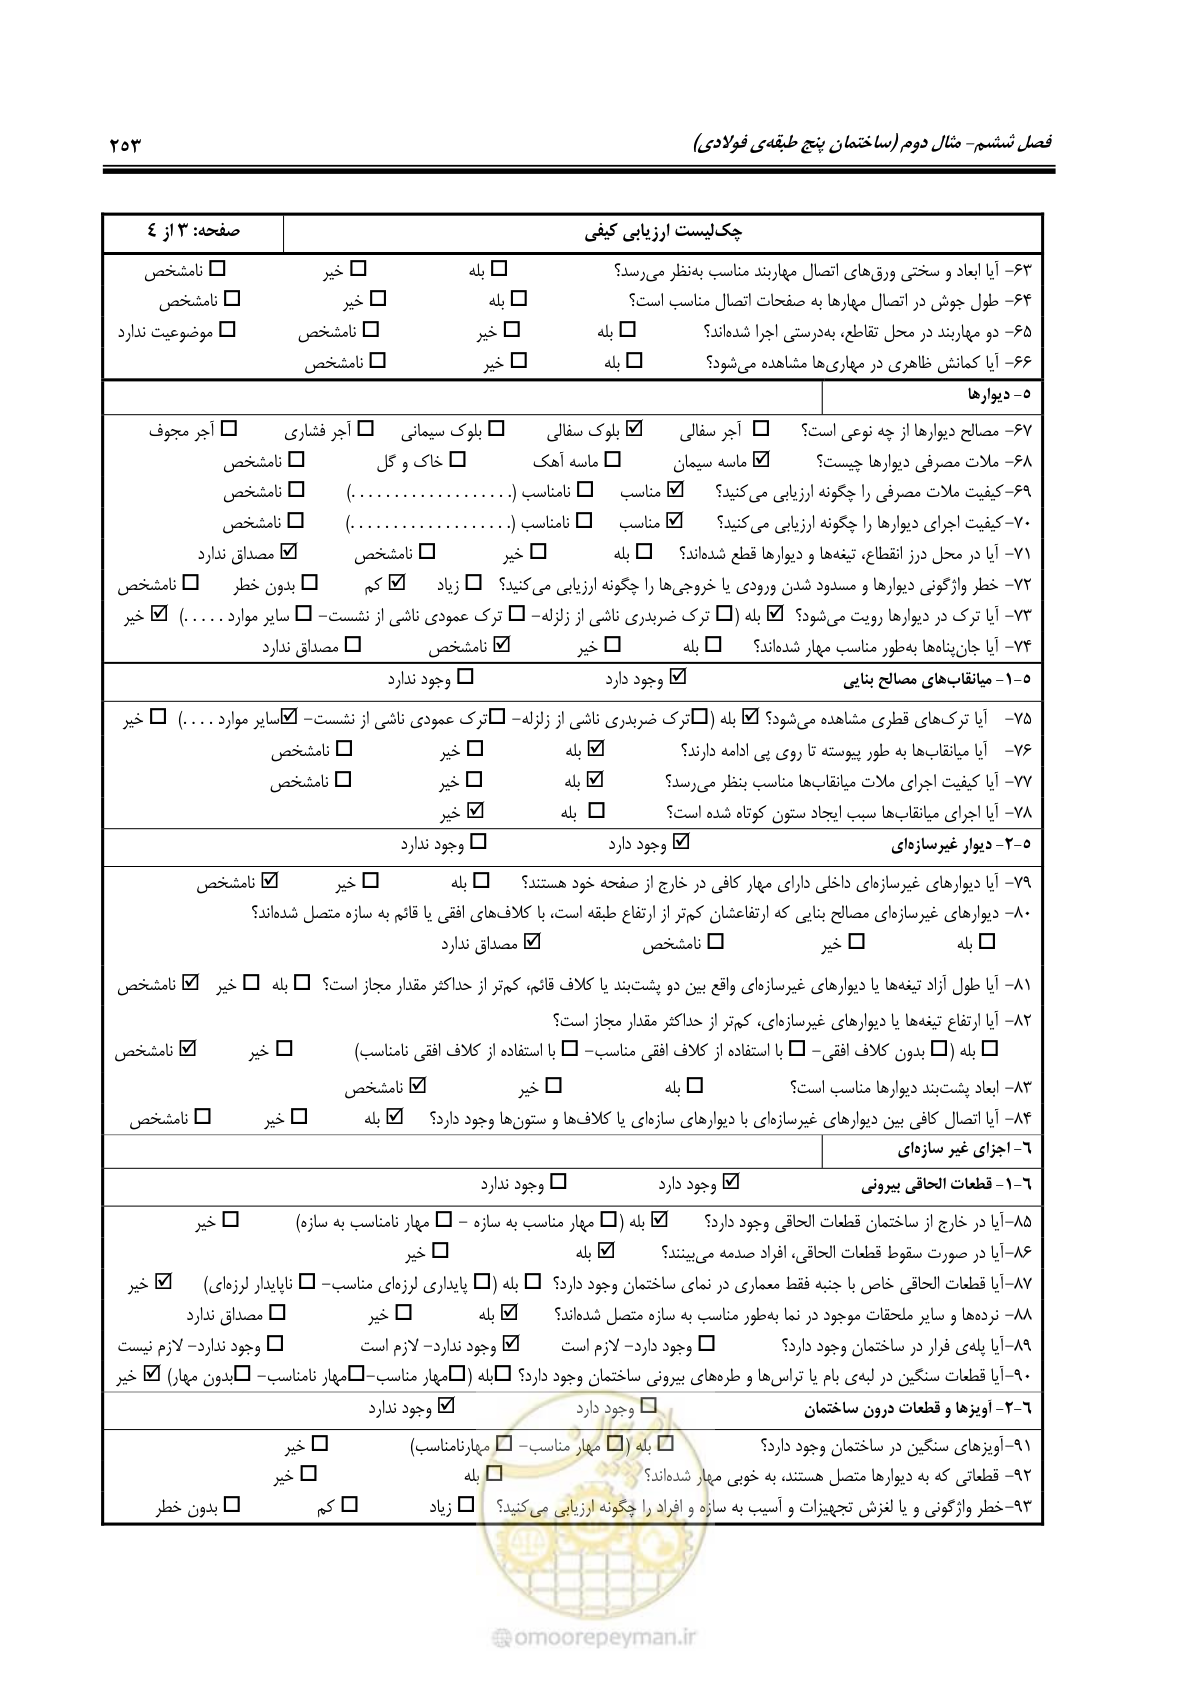 فصل ششم- مثال دوم (ساختمان پنج طبقه‌ی فولادی) ۲۵۳
چک‌لیست ارزیابی کیفی صفحه: ۳ از ٤
۶۳- آیا ابعاد و سختی ورق‌های اتصال مهاربند مناسب به‌نظر می‌رسد؟ ☐ بله ☐ خیر ☐ نامشخص
۶۴- طول جوش در اتصال مهارها به صفحات اتصال مناسب است؟ ☐ بله ☐ خیر ☐ نامشخص
۶۵- دو مهاربند در محل تقاطع، به‌درستی اجرا شده‌اند؟ ☐ بله ☐ خیر ☐ نامشخص ☐ موضوعیت ندارد
۶۶- آیا کمانش ظاهری در مهاری‌ها مشاهده می‌شود؟ ☐ بله ☐ خیر ☐ نامشخص
۵- دیوارها
۶۷- مصالح دیوارها از چه نوعی است؟ ☐ آجر سفالی ☑ بلوک سفالی ☐ بلوک سیمانی ☐ آجر فشاری ☐ آجر مجوف
۶۸- ملات مصرفی دیوارها چیست؟ ☑ ماسه سیمان ☐ ماسه آهک ☐ خاک و گل ☐ نامشخص
۶۹-کیفیت ملات مصرفی را چگونه ارزیابی می‌کنید؟ ☑ مناسب ☐ نامناسب (. . . . . . . . . . . . . . . . . . .) ☐ نامشخص
۷۰-کیفیت اجرای دیوارها را چگونه ارزیابی می‌کنید؟ ☑ مناسب ☐ نامناسب (. . . . . . . . . . . . . . . . . . .) ☐ نامشخص
۷۱- آیا در محل درز انقطاع، تیغه‌ها و دیوارها قطع شده‌اند؟ ☐ بله ☐ خیر ☐ نامشخص ☑ مصداق ندارد
۷۲- خطر واژگونی دیوارها و مسدود شدن ورودی یا خروجی‌ها را چگونه ارزیابی می‌کنید؟ ☐ زیاد ☑ کم ☐ بدون خطر ☐ نامشخص
۷۳- آیا ترک در دیوارها رویت می‌شود؟ ☑ بله (☐ ترک ضربدری ناشی از زلزله- ☐ ترک عمودی ناشی از نشست- ☐ سایر موارد . . . . .) ☑ خیر
۷۴- آیا جان‌پناه‌ها به‌طور مناسب مهار شده‌اند؟ ☐ بله ☐ خیر ☑ نامشخص ☐ مصداق ندارد
۵-۱- میانقاب‌های مصالح بنایی ☑ وجود دارد ☐ وجود ندارد
۷۵- آیا ترک‌های قطری مشاهده می‌شود؟ ☑ بله (☐ترک ضربدری ناشی از زلزله- ☐ترک عمودی ناشی از نشست- ☑سایر موارد . . . .) ☐ خیر
۷۶- آیا میانقاب‌ها به طور پیوسته تا روی پی ادامه دارند؟ ☑ بله ☐ خیر ☐ نامشخص
۷۷- آیا کیفیت اجرای ملات میانقاب‌ها مناسب بنظر می‌رسد؟ ☑ بله ☐ خیر ☐ نامشخص
۷۸- آیا اجرای میانقاب‌ها سبب ایجاد ستون کوتاه شده است؟ ☐ بله ☑ خیر
۵-۲- دیوار غیرسازه‌ای ☑ وجود دارد ☐ وجود ندارد
۷۹- آیا دیوارهای غیرسازه‌ای داخلی دارای مهار کافی در خارج از صفحه خود هستند؟ ☐ بله ☐ خیر ☑ نامشخص
۸۰- دیوارهای غیرسازه‌ای مصالح بنایی که ارتفاعشان کم‌تر از ارتفاع طبقه است، با کلاف‌های افقی یا قائم به سازه متصل شده‌اند؟
☐ بله ☐ خیر ☐ نامشخص ☑ مصداق ندارد
۸۱- آیا طول آزاد تیغه‌ها یا دیوارهای غیرسازه‌ای واقع بین دو پشت‌بند یا کلاف قائم، کم‌تر از حداکثر مقدار مجاز است؟ ☐ بله ☐ خیر ☑ نامشخص
۸۲- آیا ارتفاع تیغه‌ها یا دیوارهای غیرسازه‌ای، کم‌تر از حداکثر مقدار مجاز است؟
☐ بله (☐ بدون کلاف افقی- ☐ با استفاده از کلاف افقی مناسب- ☐ با استفاده از کلاف افقی نامناسب) ☐ خیر ☑ نامشخص
۸۳- ابعاد پشت‌بند دیوارها مناسب است؟ ☐ بله ☐ خیر ☑ نامشخص
۸۴- آیا اتصال کافی بین دیوارهای غیرسازه‌ای با دیوارهای سازه‌ای یا کلاف‌ها و ستون‌ها وجود دارد؟ ☑ بله ☐ خیر ☐ نامشخص
٦- اجزای غیر سازه‌ای
٦-۱- قطعات الحاقی بیرونی ☑ وجود دارد ☐ وجود ندارد
۸۵-آیا در خارج از ساختمان قطعات الحاقی وجود دارد؟ ☑ بله (☐ مهار مناسب به سازه - ☐ مهار نامناسب به سازه) ☐ خیر
۸۶-آیا در صورت سقوط قطعات الحاقی، افراد صدمه می‌بینند؟ ☑ بله ☐ خیر
۸۷-آیا قطعات الحاقی خاص با جنبه فقط معماری در نمای ساختمان وجود دارد؟ ☐ بله (☐ پایداری لرزه‌ای مناسب- ☐ ناپایدار لرزه‌ای) ☑ خیر
۸۸- نرده‌ها و سایر ملحقات موجود در نما به‌طور مناسب به سازه متصل شده‌اند؟ ☑ بله ☐ خیر ☐ مصداق ندارد
۸۹-آیا پله‌ی فرار در ساختمان وجود دارد؟ ☐ وجود دارد- لازم است ☑ وجود ندارد- لازم است ☐ وجود ندارد- لازم نیست
۹۰-آیا قطعات سنگین در لبه‌ی بام یا تراس‌ها و طره‌های بیرونی ساختمان وجود دارد؟ ☐بله (☐مهار مناسب-☐مهار نامناسب- ☐بدون مهار) ☑ خیر
٦-۲- آویزها و قطعات درون ساختمان ☐ وجود دارد ☑ وجود ندارد
۹۱-آویزهای سنگین در ساختمان وجود دارد؟ ☐ بله (☐ مهار مناسب- ☐ مهارنامناسب) ☐ خیر
۹۲- قطعاتی که به دیوارها متصل هستند، به خوبی مهار شده‌اند؟ ☐ بله ☐ خیر
۹۳-خطر واژگونی و یا لغزش تجهیزات و آسیب به سازه و افراد را چگونه ارزیابی می‌کنید؟ ☐ زیاد ☐ کم ☐ بدون خطر
امور پیمان
@omoorepeyman.ir